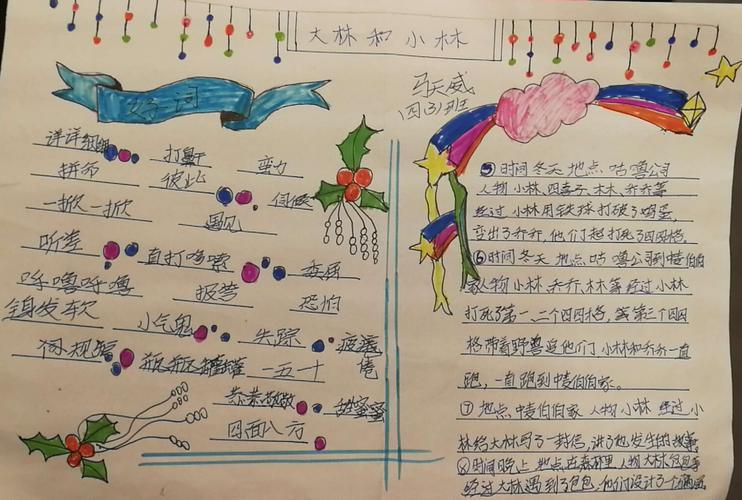 大林和小林
好词
详详细细 打鼾 蛮力
拼命 彼此
一掀一掀 伺候
遇见
听差 直打哆嗦
呼噜呼噜 报答 恐怕
全身发软 小气鬼 失踪 疲倦
瓶瓶罐罐 一五一十
恭恭敬敬 甜蜜蜜
四面八方
马天威
四(3)班
⑤时间 冬天 地点 咕噜公司
人物 小林、四喜子、木木、乔乔等
经过 小林用铁球打破了鸡蛋,
变出了乔乔,他们起打死了四四格。
⑥时间 冬天 地点 咕噜公司到中麦伯伯
家人物 小林、乔乔、木林等 经过 小林
打死了第一、二个四四格,第三个四四
格带着野兽追他们 小林和乔乔一直
跑,一直跑到中麦伯伯家。
⑦ 地点 中麦伯伯家 人物 小林 经过 小
林给大林写了一封信,讲了他发生的故事
⑧时间 晚上 地点 在森林里 人物 大林包包等
经过大林遇到了包包,他们设计了个